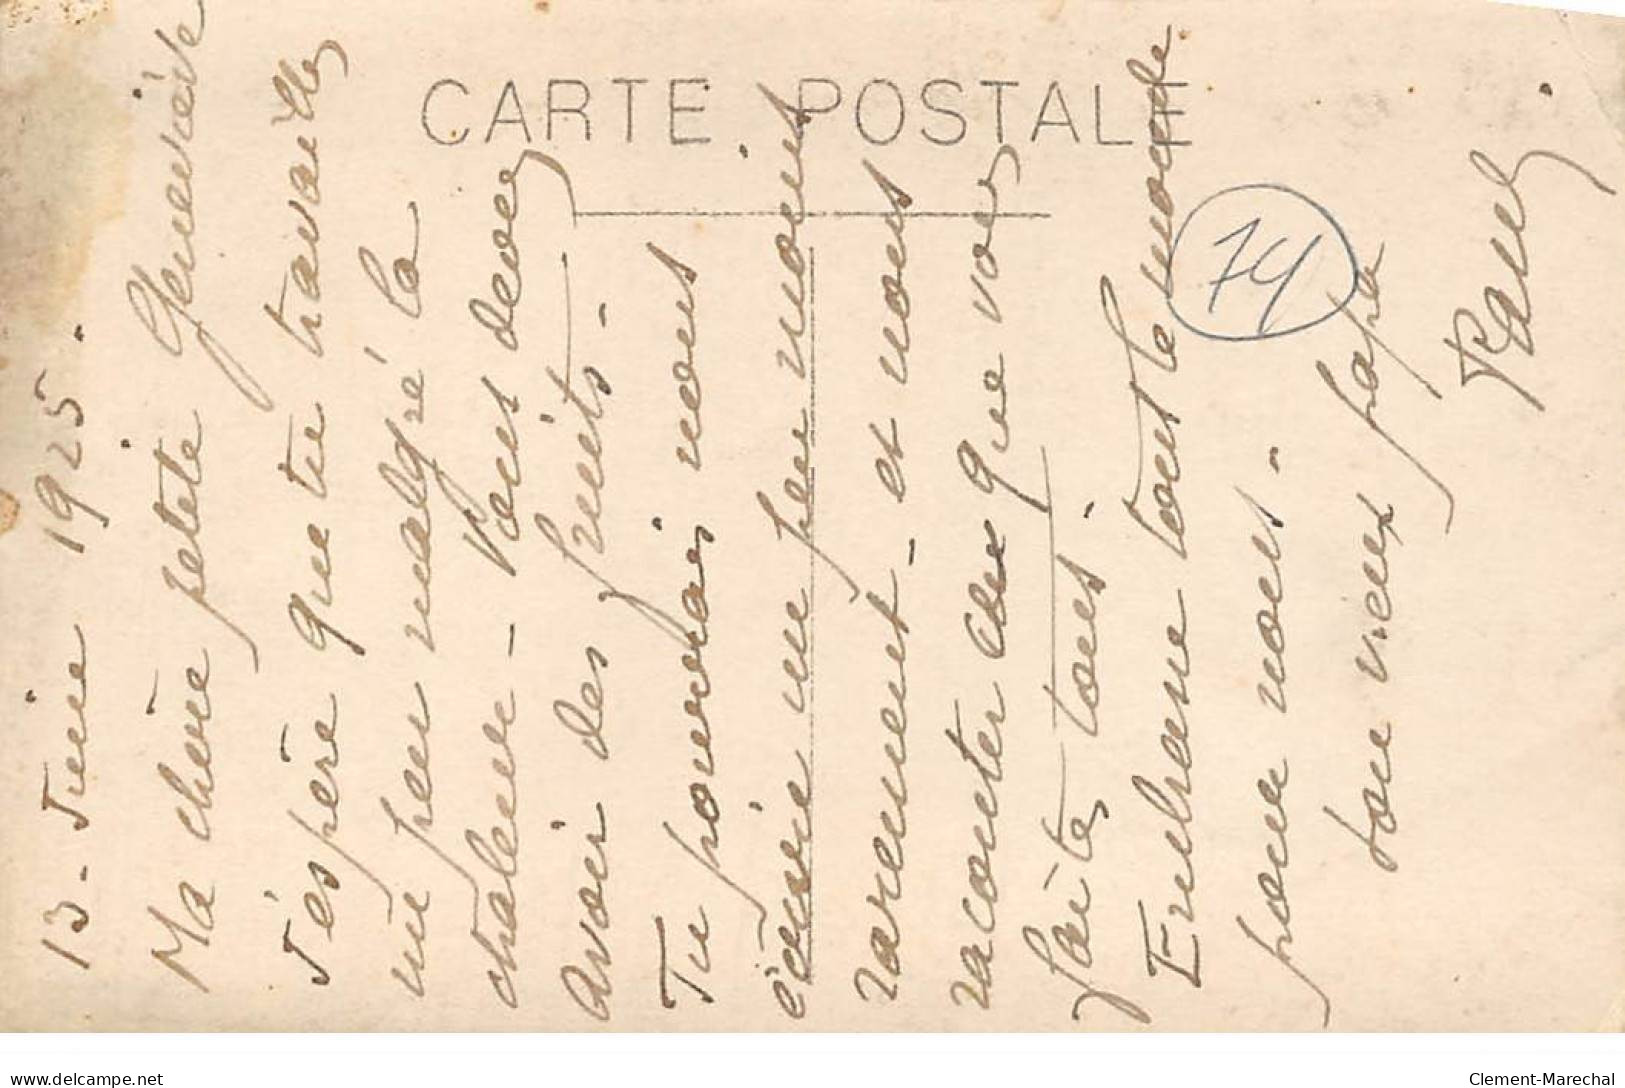 CARTE POSTALE
13 - Juin 1925.
Ma chère petite Geneviève
J'éspère que tu travailles
un peu malgré la
chaleur - Vous devez
avoir des fruits.-
Tu pourrais nous
écrire un peu moins
rarement - et nous
raconter ce que vous
faites tous.-
Embrasse tout le monde
pour nous.-
ton vieux papa
Paul.
74
delcampe.net
Clement-Marechal